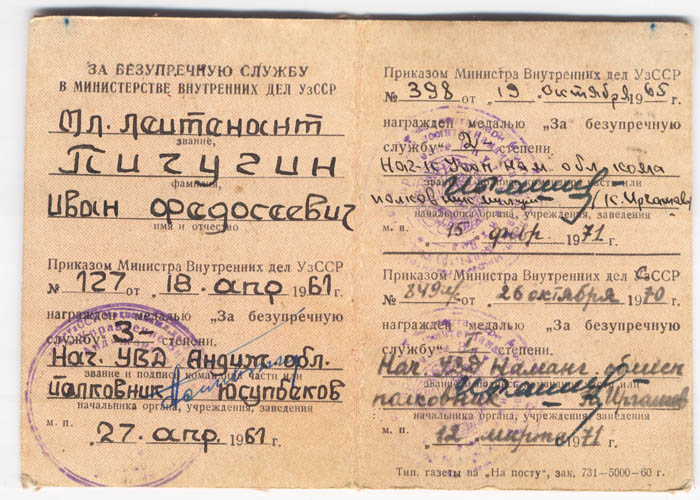 ЗА БЕЗУПРЕЧНУЮ СЛУЖБУ
В МИНИСТЕРСТВЕ ВНУТРЕННИХ ДЕЛ УзССР
Мл. лейтенант
звание,
Пичугин
фамилия,
Иван Федосеевич
имя и отчество
Приказом Министра Внутренних дел УзССР
№ 127 от „ 18 . апр 1961 г.
награжден медалью „За безупречную
службу" 3- степени.
Нач. УВД Андиж. обл.
звание и подпись командира части или
Полковник Юсупбеков
начальника органа, учреждения, заведения
м. п.
„ 27. апр. 1961 г.
Приказом Министра Внутренних дел УзССР
№ 398 от „ 19 . октября 1965 г.
награжден медалью „За безупречную
службу" степени.
Нам. обл.
полковник
начальника органа, учреждения, заведения
м. п. „ 15 „ февр. 1971 г.
Приказом Министра Внутренних дел УзССР
№ от „ 26 октября 1970 г.
награжден медалью „За безупречную
службу" I степени.
Нач. УВД Наманг.
звание и подпись командира части или
полковник Иргашев
начальника органа, учреждения, заведения
м. п. „ 12 „ марта 1971 г.
Тип. газеты „На посту", зак. 731-5000-60 г.